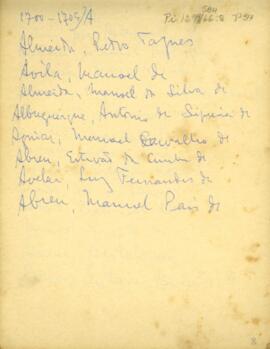 1700-1705/A
584
Almeida, Pedro Taques
Avila, Manoel de
Almeida, Manoel da Silva de
Albuquerque, Antonio de Siqueira de
Aguiar, Manuel Carvalho de
Abreu, Estevão da Cunha de
Avelar, Luiz Fernandes de
Abreu, Manuel Pais de
8